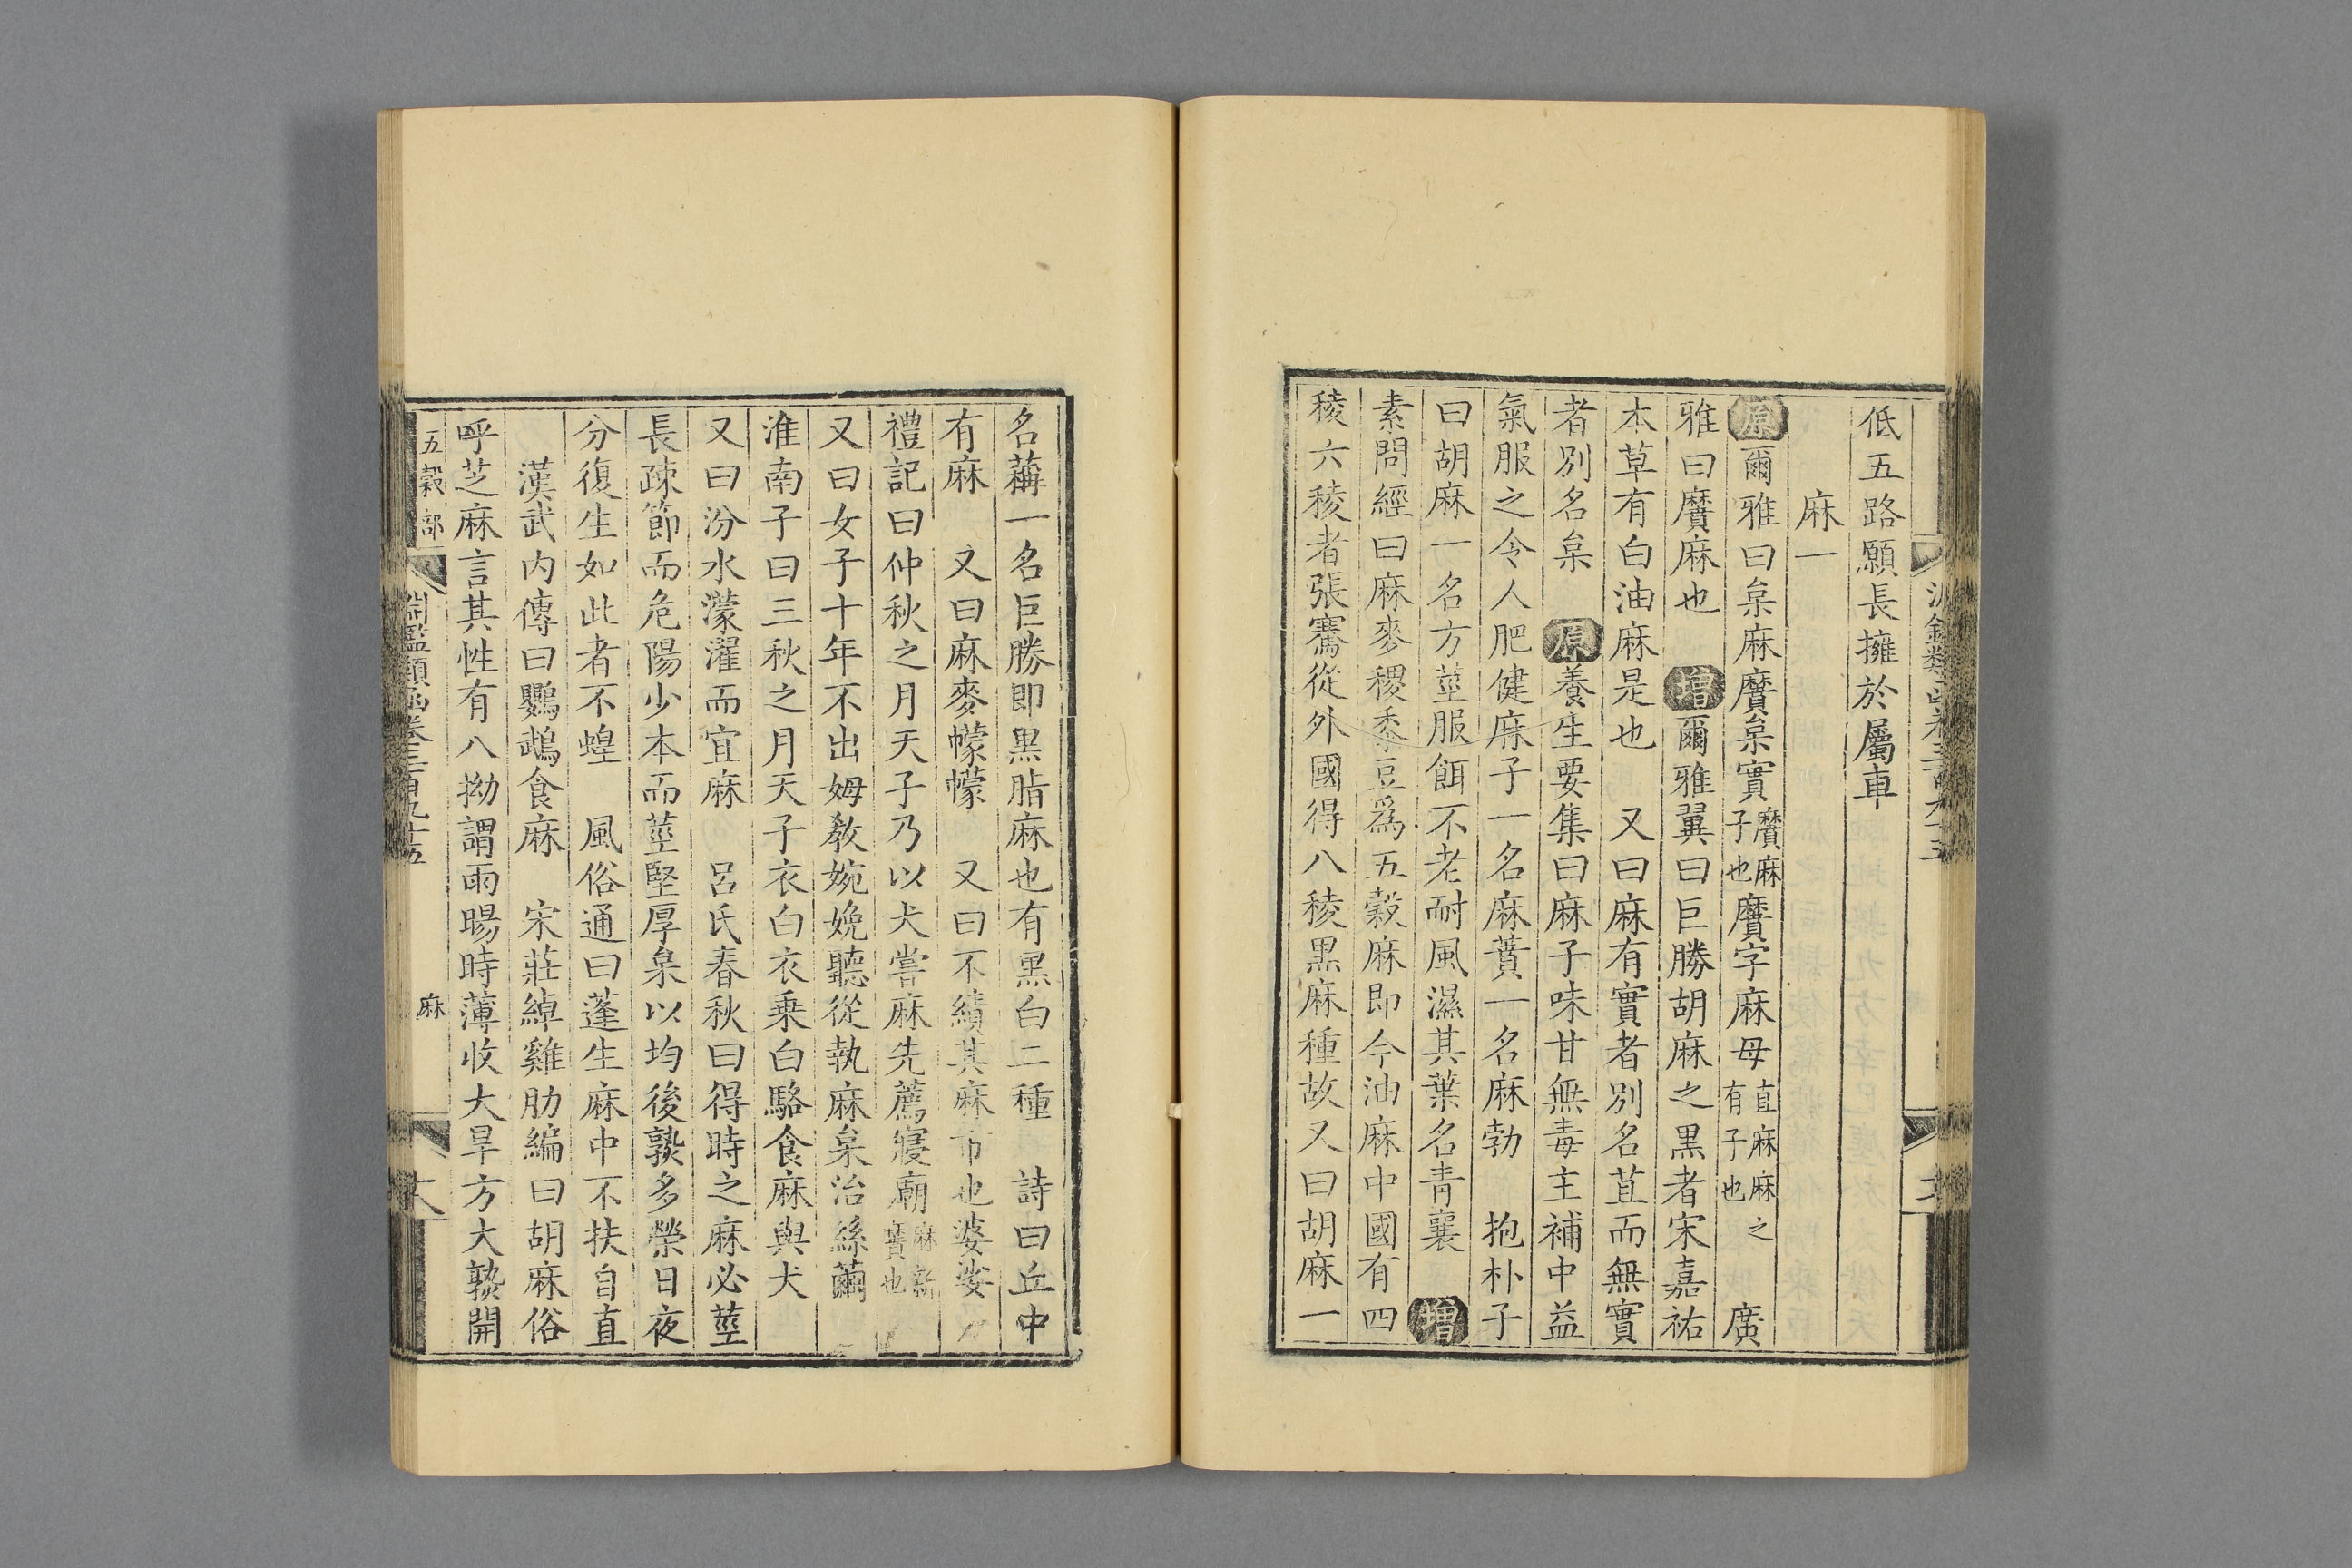 低五路願長擁於屬車
麻一
原爾雅曰枲麻黂枲實黂麻子麻也黂字麻母苴麻麻之有子也　廣
雅曰黂麻也　增爾雅翼曰巨勝胡麻之黒者宋嘉祐
本草有白油麻是也　又曰麻有實者別名苴而無實
者別名枲　原養生要集曰麻子味甘無毒主補中益
氣服之令人肥健麻子一名麻蕡一名麻勃　抱朴子
曰胡麻一名方莖服餌不老耐風濕其葉名青襄　增
素問經曰麻麥稷黍豆爲五穀麻即今油麻中國有四
稜六稜者張騫從外國得八稜黒麻種故又曰胡麻一
名藕一名巨勝即黒脂麻也有黒白二種　詩曰丘中
有麻　又曰麻麥幪幪　又曰不績其麻市也婆娑
禮記曰仲秋之月天子乃以犬嘗麻先薦寢廟麻新實也
又曰女子十年不出姆教婉娩聽從執麻枲治絲繭
淮南子曰三秋之月天子衣白衣乗白駱食麻與犬
又曰汾水濛濯而宜麻　呂氏春秋曰得時之麻必莖
長疎節而危陽少本而莖堅厚枲以均後孰多榮日夜
分復生如此者不蝗　風俗通曰蓬生麻中不扶自直
漢武内傳曰鸚鵡食麻　宋莊綽雞肋編曰胡麻俗
呼芝麻言其性有八拗謂雨暘時薄收大旱方大孰開
五穀部
淵鑑類函卷三百九十五
麻